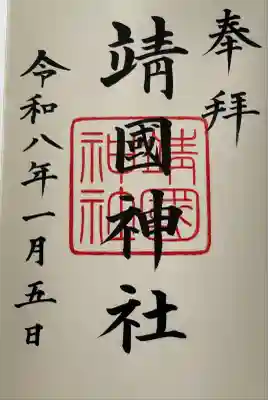 奉拝
靖國神社
靖國
神社
令和八年一月五日